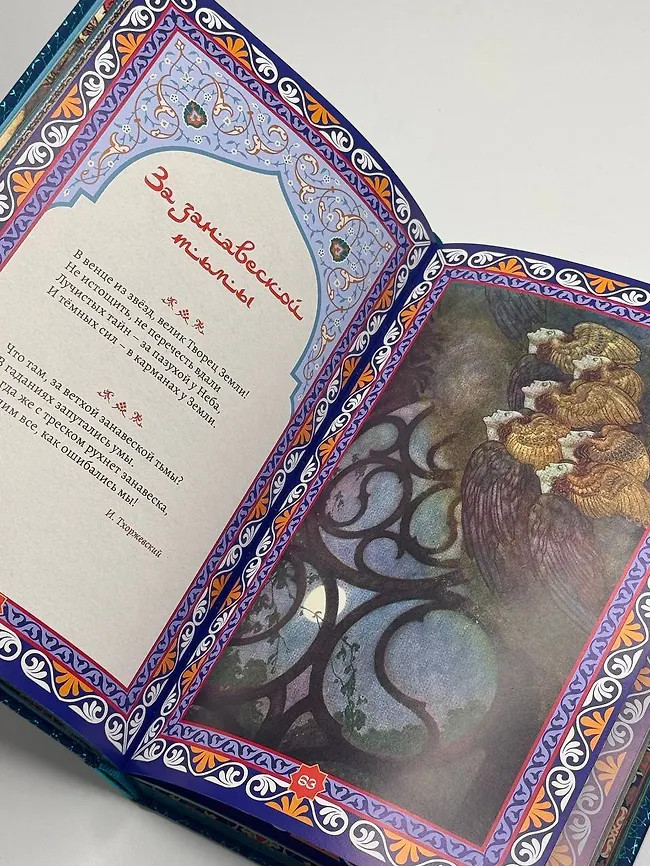 За занавеской
тьмы
В венце из звёзд, велик Творец Земли!
Не истощить, не перечесть вдали
Лучистых тайн – за пазухой у Неба,
И тёмных сил – в карманах у Земли.
Что там, за ветхой занавеской тьмы?
В гаданиях запутались умы.
гда же с треском рухнет занавеска,
им все, как ошибались мы!
И. Тхоржевский
63